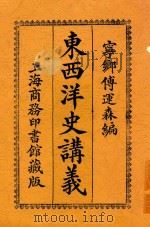 寧鄉傅運森編
東西洋史講義
上海商務印書館藏版
www.duxiu.com